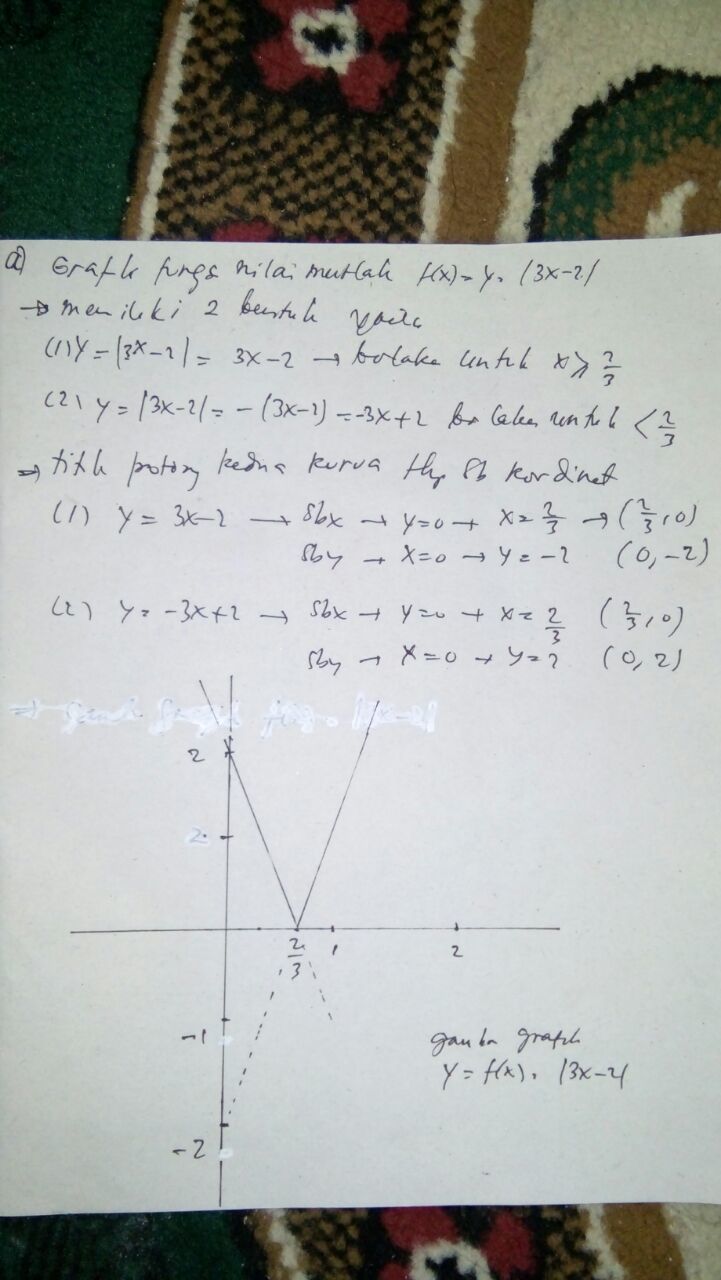 a) Grafik fungsi nilai mutlak f(x) = y = |3x-2|
→ memiliki 2 bentuk yaitu
(1) y = |3x-2| = 3x-2 → berlaku untuk x ≥ 2/3
(2) y = |3x-2| = -(3x-2) = -3x+2 berlaku untuk < 2/3
⇒ titik potong kedua kurva thp sb kordinat
(1) y = 3x-2 → sbx → y=0 → x = 2/3 → (2/3, 0)
sby → x=0 → y = -2 (0, -2)
(2) y = -3x+2 → sbx → y=0 → x = 2/3 (2/3, 0)
sby → x=0 → y=2 (0, 2)
2
2
2/3 1 2
-1
-2
gambar grafik
y = f(x) = |3x-2|